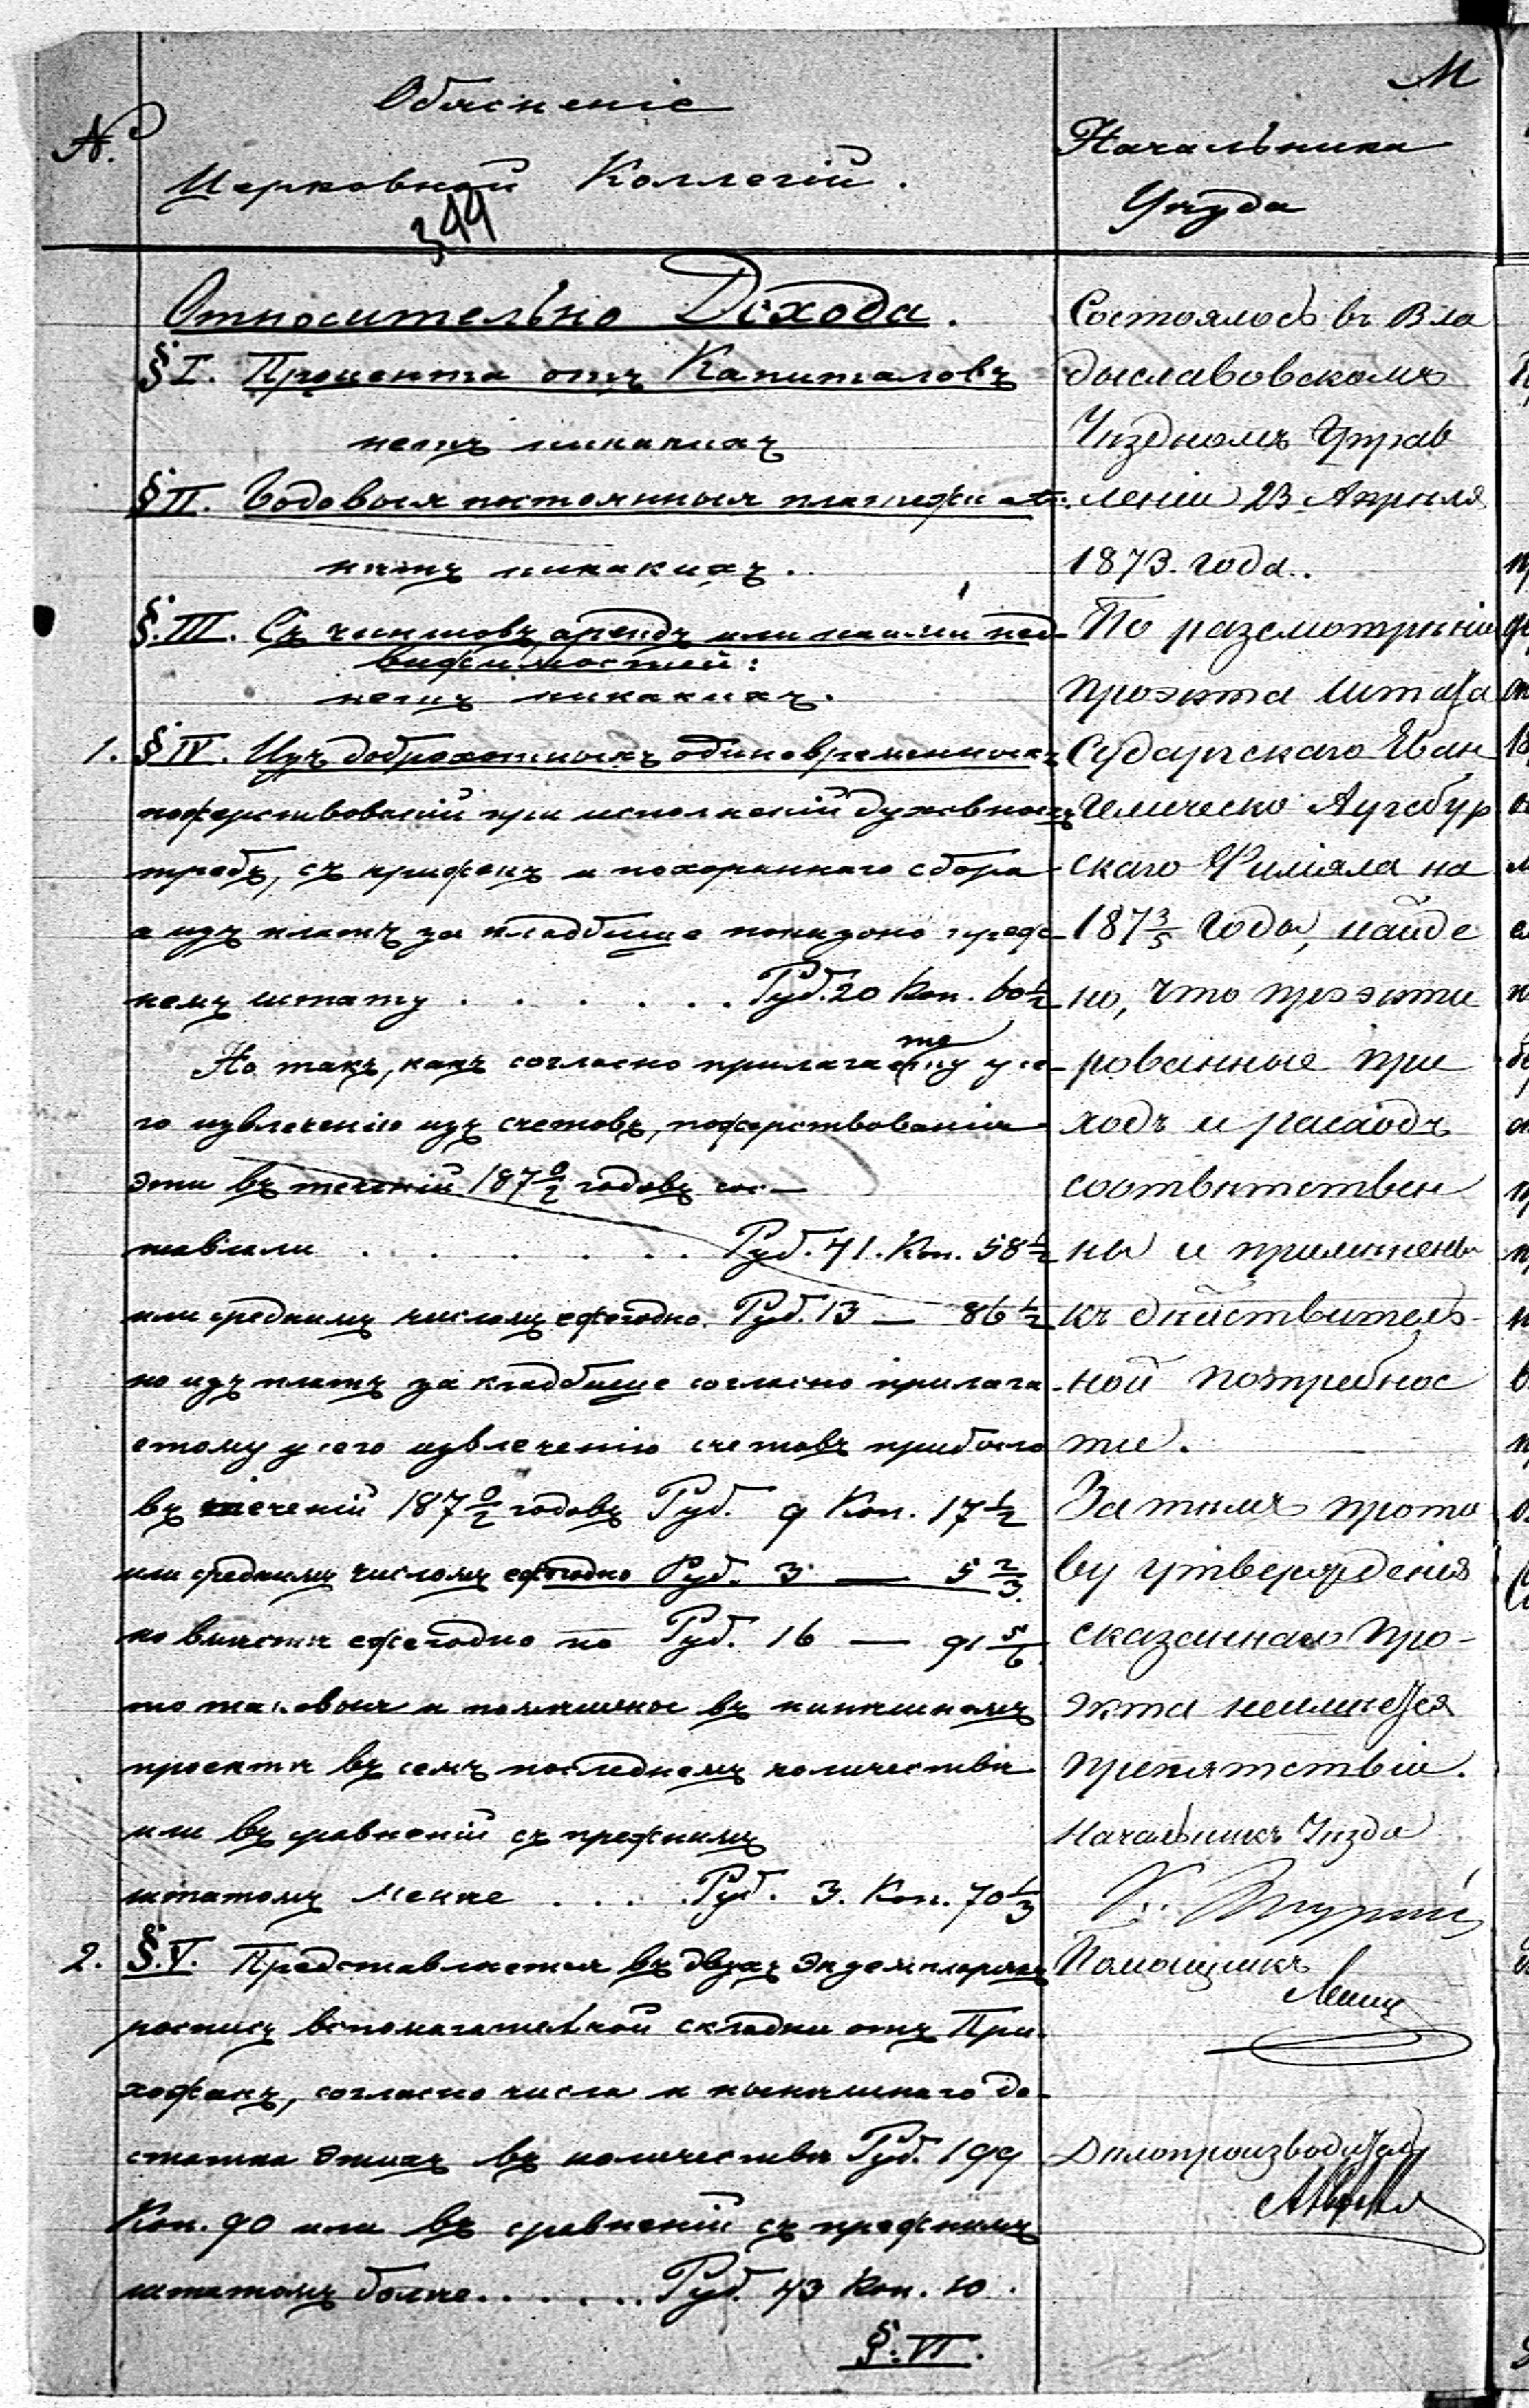 М
№
Объясненіе
Церковной Коллегій.
344
Начальника
Уѣзда
Относительно Дохода.
§ I. Процента отъ Капиталовъ
нетъ никакихъ
§ II. Годовыя постоянныя платежи
нѣтъ никакихъ.
§. III. Съ чиншовъ, арендъ или найми нед-
вижимостей:
нетъ никакихъ.
1. § IV. Изъ доброхотныхъ одиновременныхъ
пожертвованій при исполненій духовныхъ
требъ, съ кружекъ и похороннаго сбора
а изъ платъ за кладбище показано преж-
нему штату . . . . . . . Руб. 20 Коп. 60½
Но такъ, какъ согласно прилагаемому у се-
го извлеченію изъ счетовъ, пожертвованія
эти въ теченій 187 0/2 годовъ сос-
тавляли . . . . . . . Руб. 41. Коп. 58½
или среднимъ числомъ ежегодно. Руб. 13 — 86½
но изъ платъ за кладбище согласно прилага-
емому у сего извлеченію счетовъ прибыло
въ теченій 187 0/2 годовъ Руб. 9 Коп. 17½
или среднимъ числомъ ежегодно Руб. 3 — 5 2/3.
но вмѣстѣ ежегодно по Руб. 16 — 91 5/6.
то таковыя и помѣщены въ нинѣшномъ
проектѣ въ семъ последнемъ количествѣ
или въ сравненій съ прежнимъ
штатомъ менѣе . . . . Руб. 3. Коп. 70⅓
2. §. V. Представляется въ двухъ экземплярахъ
роспись вспомагательной складки отъ При-
хожанъ, согласно числа и нынѣшнаго до-
статка этихъ въ количествѣ Руб. 199
Коп. 90 или въ сравненій съ прежнимъ
штатомъ болѣе. . . . . . Руб. 43 Коп. 10.
§. VI.
Состоялось въ Вла
дыславовскомъ
Уѣздномъ Управ
леніи 23 Апрѣля
1873. года.
По разсмотрѣніи
проэкта штата
Сударгскаго Еван
гелическо Аугсбур
скаго Филіяла на
187 3/5 годы, найде
но, что проэкти
рованные при
ходъ и расходъ
соотвѣтствен
ны и примѣнены
къ дѣйствитель-
ной потребнос
ти.
Затѣмъ прото
ву утвержденія
сказаннаго про-
экта неимѣется
препятствіи.
Начальникъ Уѣзда
Помощникъ
Дѣлопроизводитель